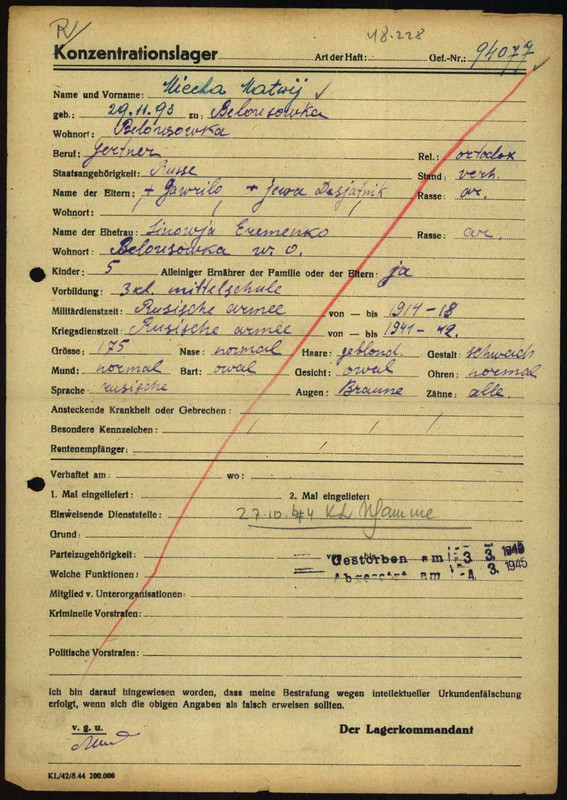 R/
48.228
Konzentrationslager Art der Haft: Gef.-Nr.: 94077
Name und Vorname: Miecha Matwij
geb.: 29.11.93 zu: Belousowka
Wohnort: Belousowka
Beruf: Gertner Rel.: ortodox
Staatsangehörigkeit: Russe Stand: verh.
Name der Eltern: + Gawrilo + Jewa Desjatnik Rasse: ar.
Wohnort: / / /
Name der Ehefrau: Sinowja Eremenko Rasse: ar.
Wohnort: Belousowka w. o.
Kinder: 5 Alleiniger Ernährer der Familie oder der Eltern: ja
Vorbildung: 3 kl. mittelschule
Militärdienstzeit: Rusische armee von — bis 1914-18
Kriegsdienstzeit: Rusische armee von — bis 1941-42.
Grösse: 175 Nase: normal Haare: geblond. Gestalt: schwach
Mund: normal Bart: owal Gesicht: owal Ohren: normal
Sprache rusische Augen: Braune Zähne: alle.
Ansteckende Krankheit oder Gebrechen:
Besondere Kennzeichen: / / /
Rentenempfänger: /
Verhaftet am: wo:
1. Mal eingeliefert 2. Mal eingeliefert
Einweisende Dienststelle: 27.10.44 KL N'gamme
Grund:
Parteizugehörigkeit: von — bis
Gestorben am 3. 3. 1945
Welche Funktionen: Abgesetzt am 4. 3. 1945
Mitglied v. Unterorganisationen:
Kriminelle Vorstrafen:
Politische Vorstrafen:
Ich bin darauf hingewiesen worden, dass meine Bestrafung wegen intellektueller Urkundenfälschung
erfolgt, wenn sich die obigen Angaben als falsch erweisen sollten.
v. g. u. Der Lagerkommandant
KL/42/8.44 200.000